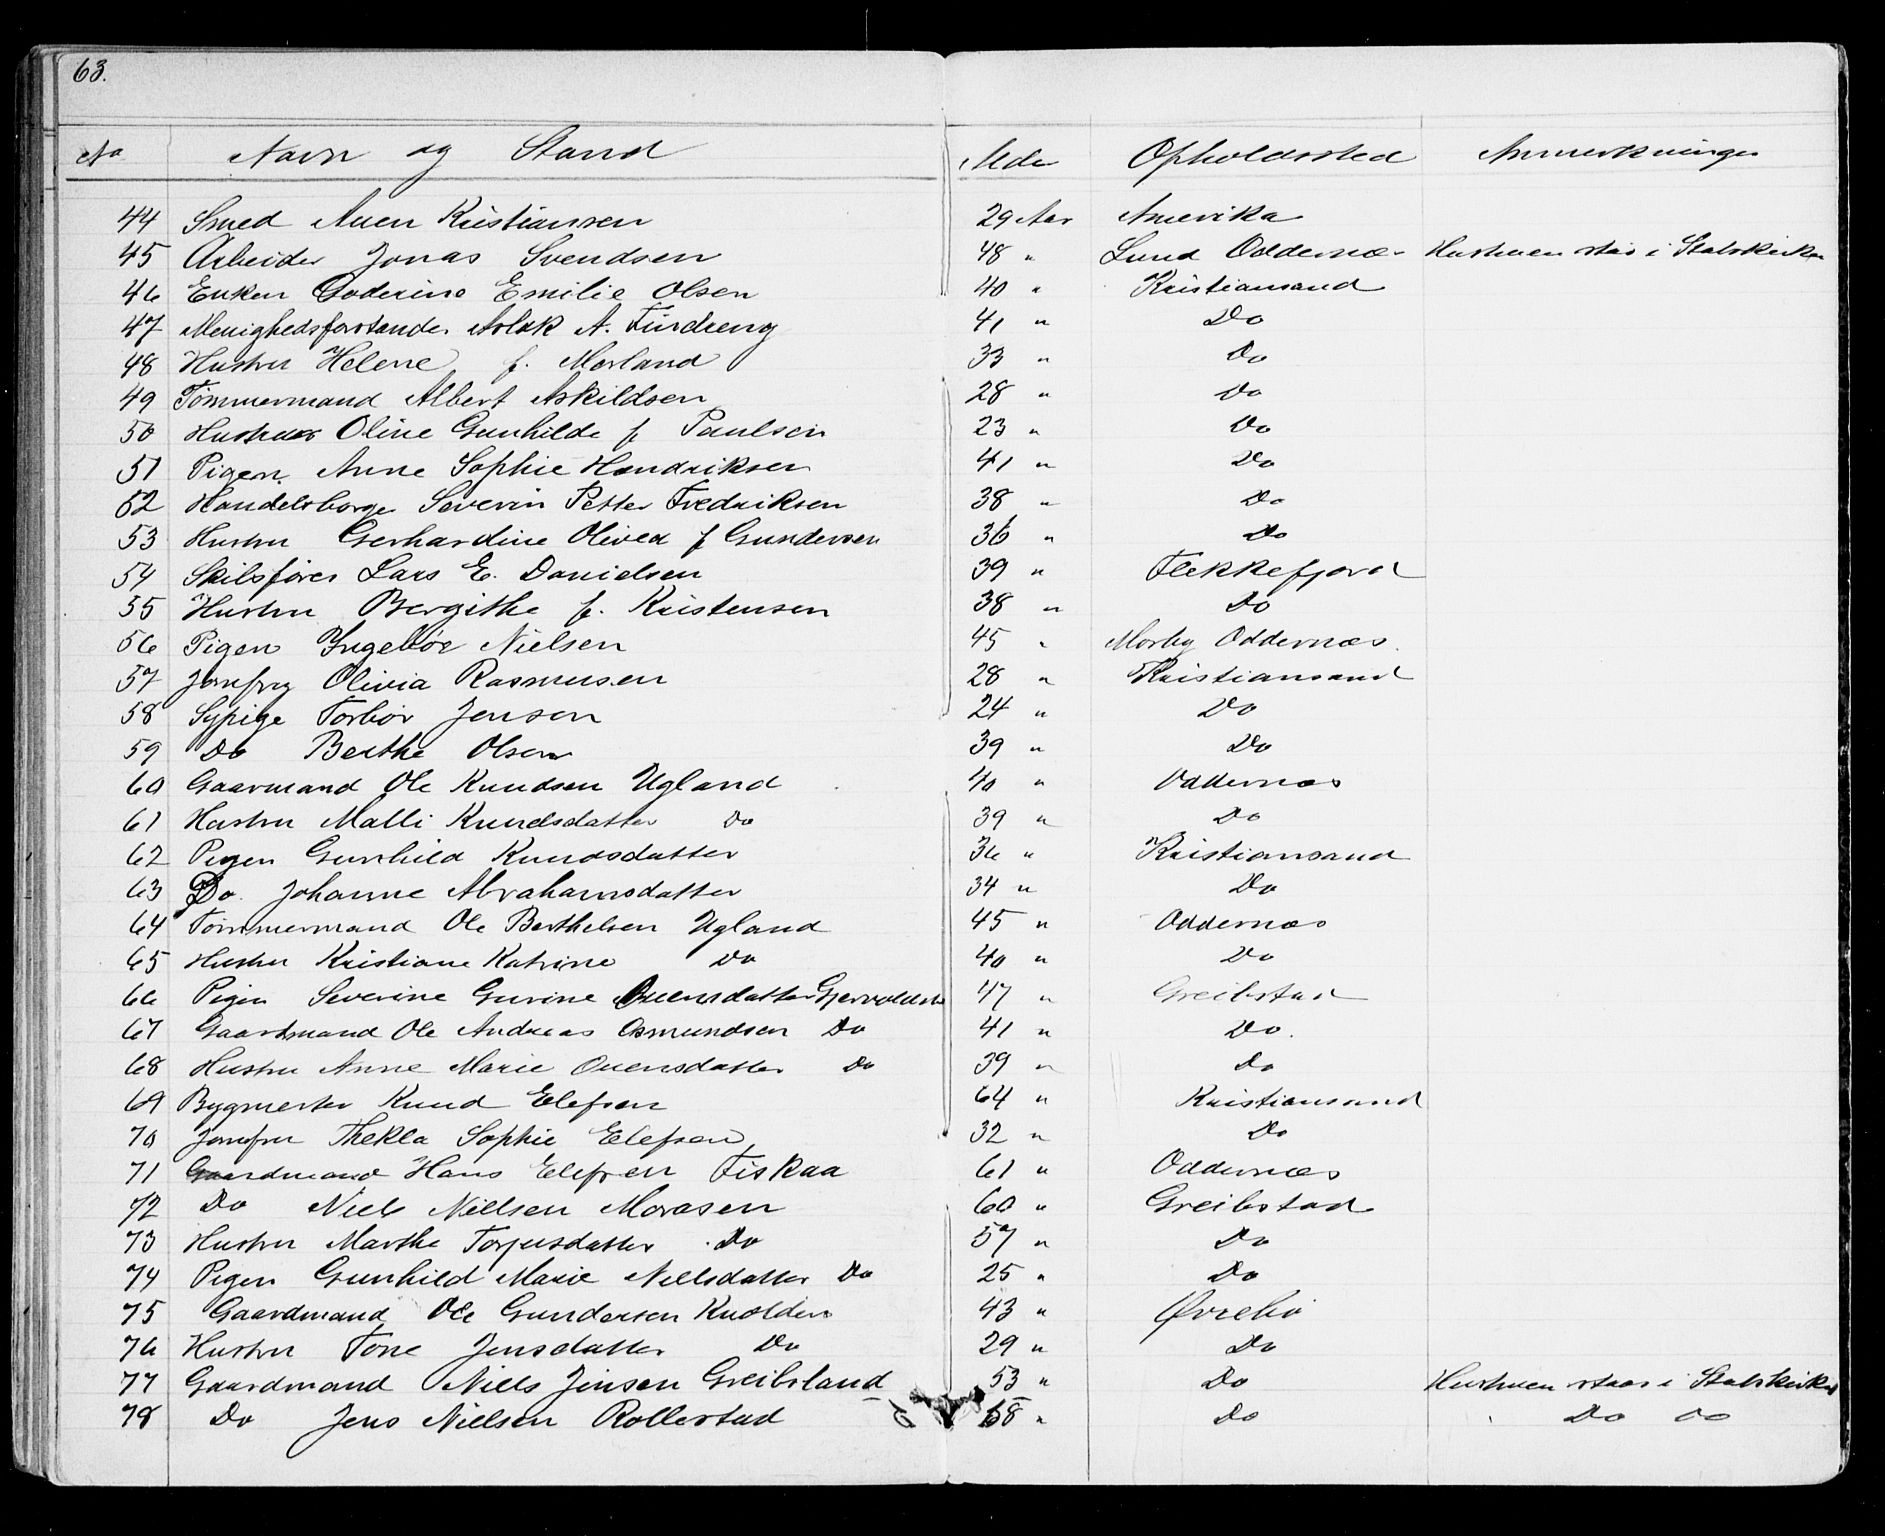 63.
No Navn og Stand Alder Opholdssted Anmerkninger
44 Smed Auen Kristiansen 29 Aar Amerika
45 Arbeider Jonas Svendsen 48 " Lund Oddernæs Hustruen staar i Statskirken
46 Enken Emilie Olsen 40 " Kristiansand
47 Menighedsforstander Aslak A. 41 " Do
48 Hustru Helene f. Morland 33 " Do
49 Tømmermand Albert Askildsen 28 " Do
50 Hustru Oline Gunhilde f Paulsen 23 " Do
51 Pigen Anne Sophie Hendriksen 41 " Do
52 Handelsborger Severin Petter Fredriksen 38 " Do
53 Hustru Gerhardine Olivea f Gundersen 36 " Do
54 Skibsfører Lars E. Danielsen 39 " Flekkefjord
55 Hustru Bergithe f. Kristensen 38 " Do
56 Pigen Ingebør Nielsen 45 " Mosby Oddernæs.
57 Jomfru Olivia Rasmusen 28 " Kristiansand
58 Sypige Torbør Jensen 24 " Do
59 Do Berthe Olsen 39 " Do
60 Gaarmand Ole Knudsen Ugland 40 " Oddernæs
61 Hustru Malli Knudsdatter Do 39 " Do
62 Pigen Gunhild Knudsdatter 36 " Kristiansand
63 Do. Johanne Abrahamsdatter 34 " Do
64 Tømmermand Ole Berthelsen Ugland 45 " Oddernæs
65 Hustru Kristiane Katrine Do 40 " Do
66 Pigen Severine Gurine Ouensdatter 47 " Greibstad
67 Gaardmand Ole Andreas Osmundsen Do 41 " Do.
68 Hustru Anne Marie Ouensdatter Do 39 " Do
69 Bygmester Knud Elefsen 64 " Kristiansand
70 Jomfru Thekla Sophie Elefsen 32 " Do
71 Gaardmand Hans Elefsen Fiskaa 61 " Oddernæs
72 Do Niels Nielsen Morasen 60 " Greibstad
73 Hustru Marthe Torjusdatter Do 57 " Do
74 Pigen Gunhild Marie Nielsdatter Do 25 " Do
75 Gaardmand Ole Gundersen Knolden 43 " Øvrebø
76 Hustru Tone Jensdatter Do 29 " Do
77 Gaardmand Niels Jensen Greibsland 53 " Do Hustruen staar i Statskirken
78 Do Jens Nielsen Rollestad 58 " Do Do Do